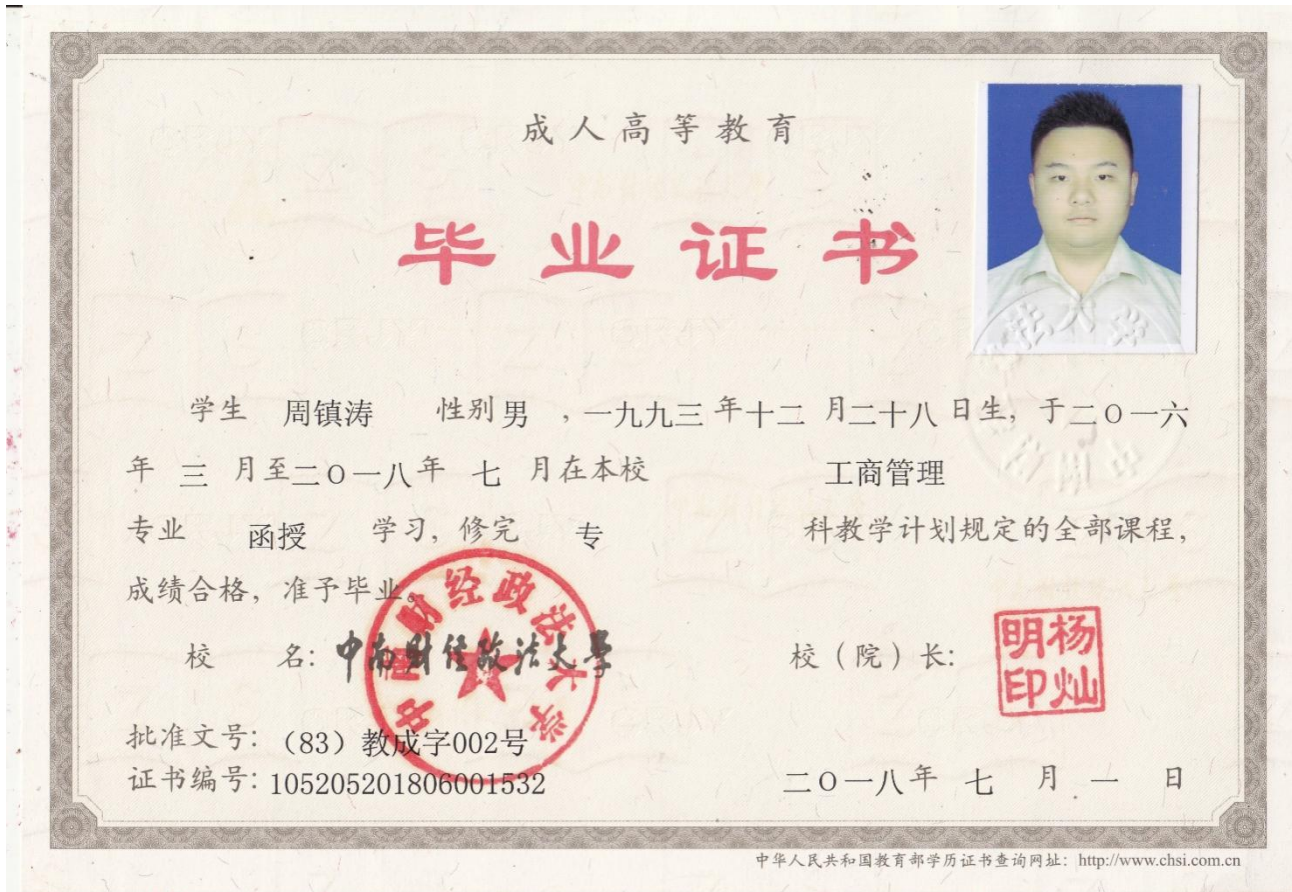 成人高等教育
毕业证书
学生 周镇涛 性别 男 ,一九九三 年 十二 月 二十八 日生, 于 二〇一六
年 三 月至 二〇一八 年 七 月在本校 工商管理
专业 函授 学习, 修完 专 科教学计划规定的全部课程,
成绩合格, 准予毕业。
校 名: 中南财经政法大学
中南财经政法大学
校(院)长:
杨灿明印
批准文号: (83)教成字002号
证书编号: 105205201806001532
二〇一八年 七 月 一 日
中华人民共和国教育部学历证书查询网址: http://www.chsi.com.cn